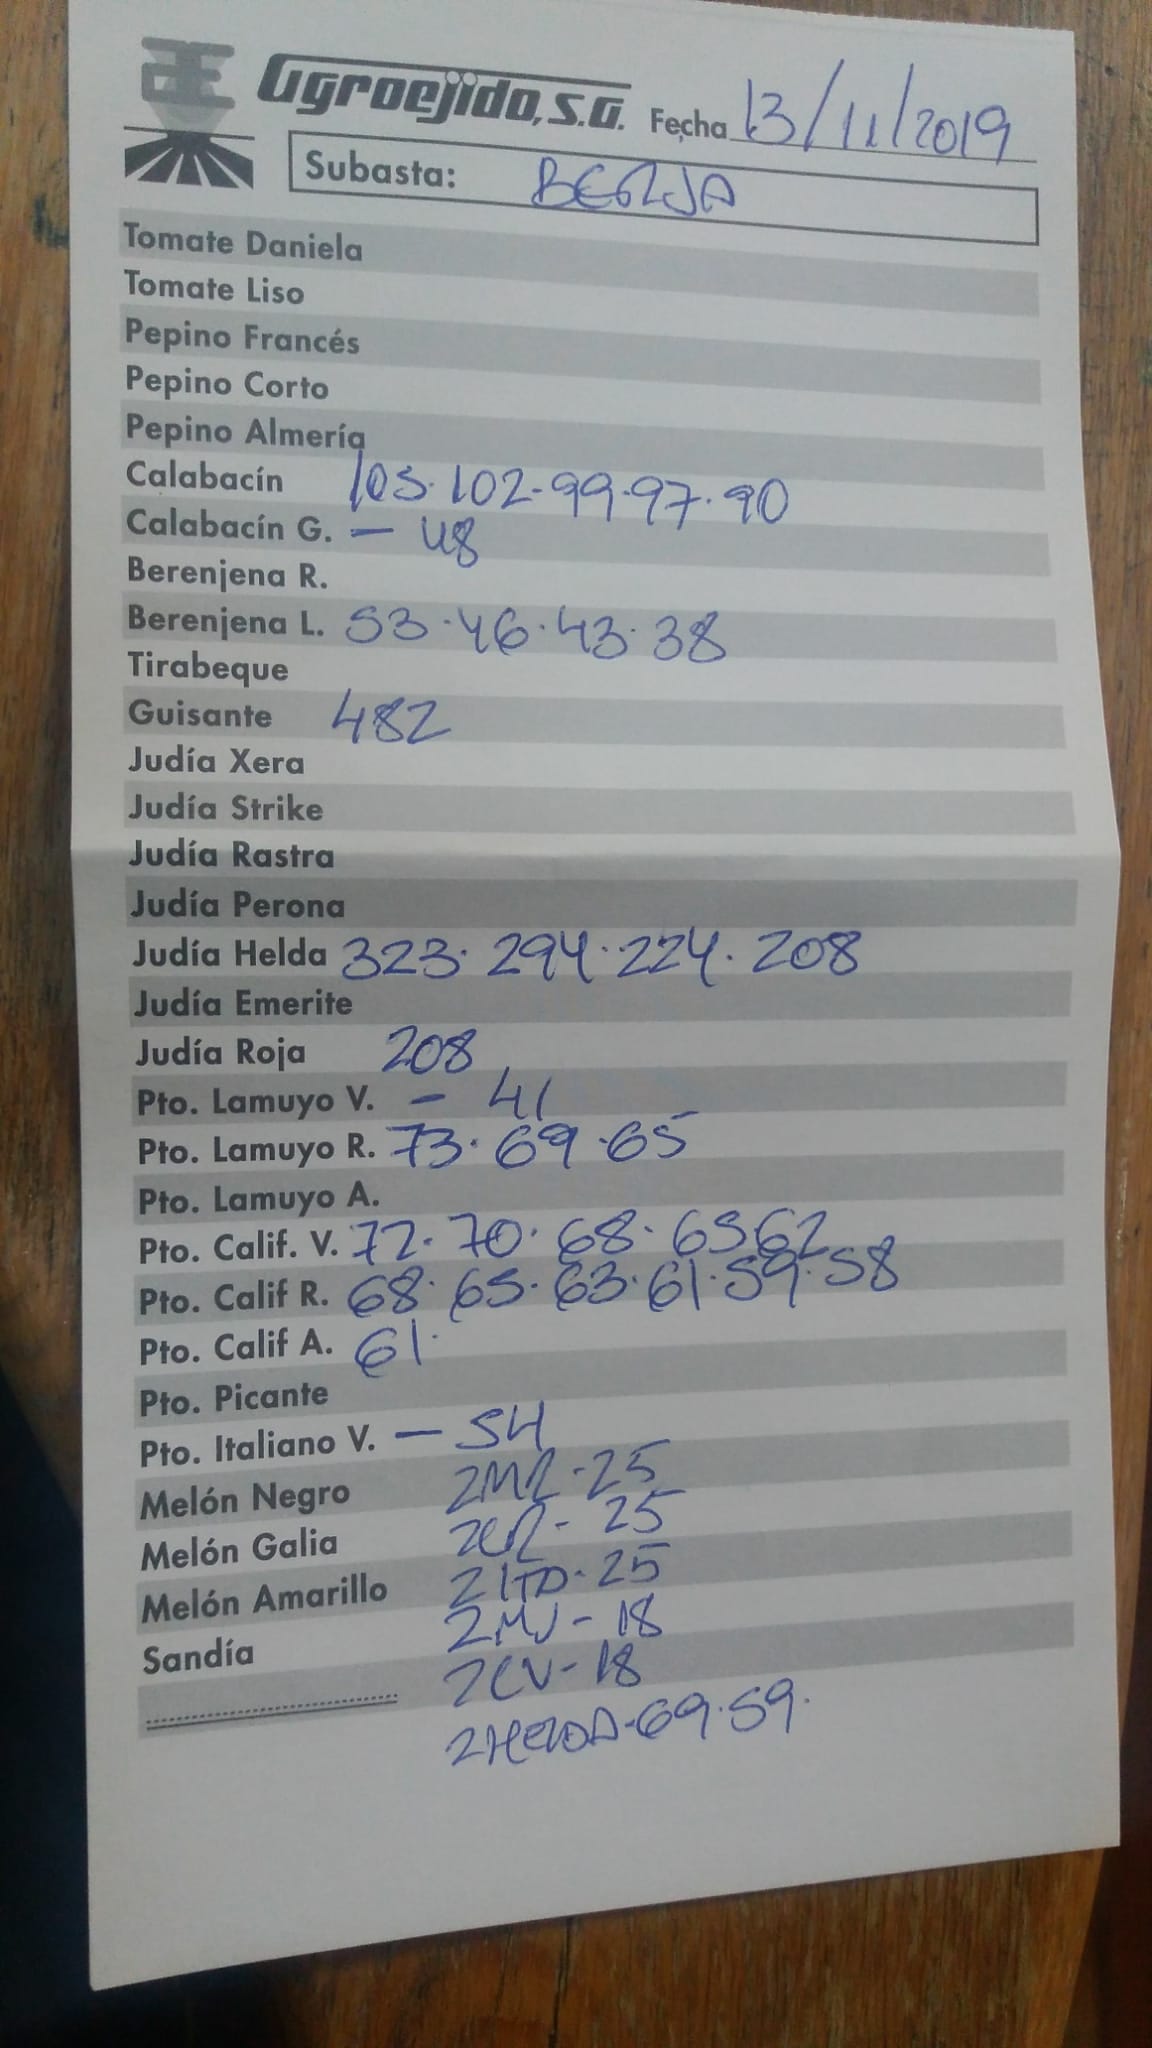 Agroejido, S.A. Fecha 13/11/2019
Subasta: BERJA
Tomate Daniela
Tomate Liso
Pepino Francés
Pepino Corto
Pepino Almería
Calabacín 105. 102. 99. 97. 90
Calabacín G. - 48
Berenjena R.
Berenjena L. 53. 46. 43. 38
Tirabeque
Guisante 482
Judía Xera
Judía Strike
Judía Rastra
Judía Perona
Judía Helda 323. 294. 224. 208
Judía Emerite
Judía Roja 208
Pto. Lamuyo V. - 41
Pto. Lamuyo R. 73. 69. 65
Pto. Lamuyo A.
Pto. Calif. V. 72. 70. 68. 65 62
Pto. Calif R. 68. 65. 63. 61. 59. 58
Pto. Calif A. 61.
Pto. Picante
Pto. Italiano V. - 54
Melón Negro 2MR - 25
Melón Galia 2CR - 25
Melón Amarillo 2 ITO - 25
2MV - 18
Sandía
2CV - 18
2HELDA - 69. 59.